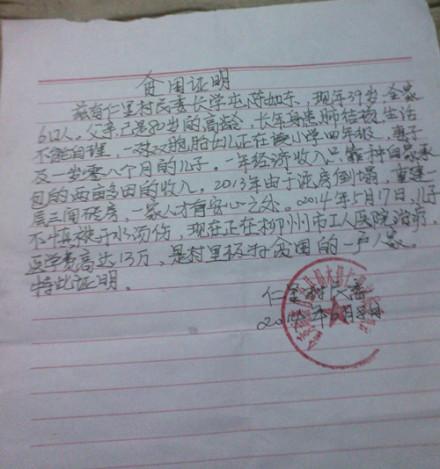 贫困证明
兹有仁里村民委长学屯陈如东，现年39岁，全家
6口人，父亲已是80岁的高龄，长年身患肺结核，生活
不能自理，一对双胞胎女儿正在读小学四年级，妻子
及一岁零八个月的儿子。一年经济收入只靠种自家承
包的两亩多田的收入。2013年由于泥房倒塌，重建一
层三间砖房，一家人才有安心之处。2014年5月17日，儿子
不慎被开水烫伤，现在正在柳州市工人医院治疗，
医学费高达13万，是村里极为贫困的一户人家。
特此证明。
仁里村
2014年6月